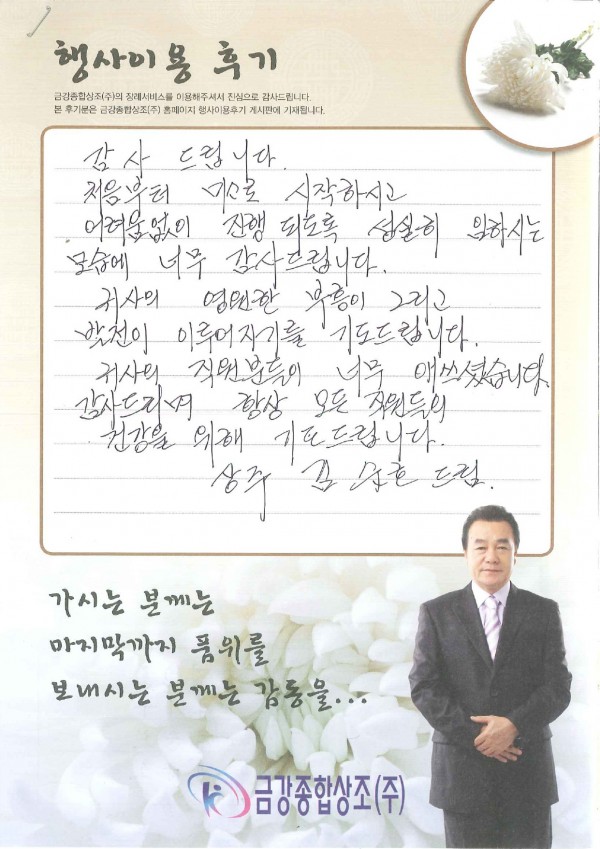 행사이용 후기
금강종합상조(주)의 장례서비스를 이용해주셔서 진심으로 감사드립니다.
본 후기분은 금강종합상조(주) 홈페이지 행사이용후기 게시판에 기재됩니다.
감사 드립니다.
처음부터 미소로 시작하시고
어려움없이 진행 되도록 성실히 임하시는
모습에 너무 감사드립니다.
귀사의 영원한 부흥이 그리고
발전이 이루어지기를 기도드립니다.
귀사의 직원분들의 너무 애쓰셨습니다.
감사드리며 항상 모든 직원들의
건강을 위해 기도드립니다.
상주 김 순호 드림.
가시는 분께는
마지막까지 품위를
보내시는 분께는 감동을...
금강종합상조(주)